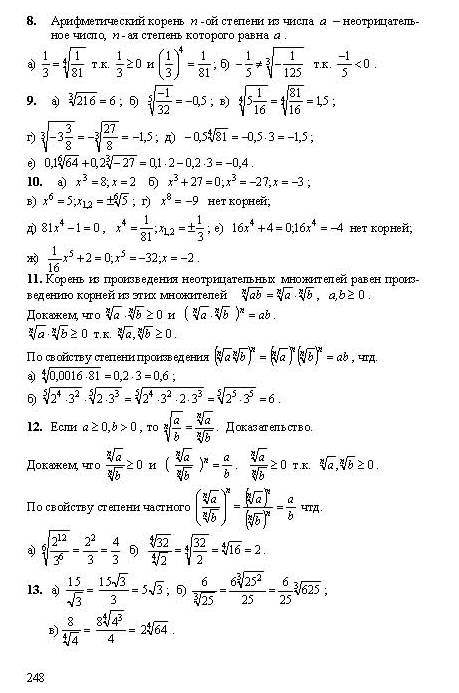 8. Арифметический корень n-ой степени из числа a – неотрицатель-
ное число, n-ая степень которого равна a.
а) 1/3 = ⁴√(1/81) т.к. 1/3 ≥ 0 и (1/3)⁴ = 1/81; б) –1/5 ≠ ³√(–1/125) т.к. –1/5 < 0.
9. а) ³√216 = 6; б) ⁵√(–1/32) = –0,5; в) ⁴√(5 1/16) = ⁴√(81/16) = 1,5;
г) ³√(–3 3/8) = –³√(27/8) = –1,5; д) –0,5⁴√81 = –0,5·3 = –1,5;
е) 0,1⁶√64 + 0,2³√–27 = 0,1·2 – 0,2·3 = –0,4.
10. а) x³ = 8; x = 2 б) x³ + 27 = 0; x³ = –27; x = –3;
в) x⁶ = 5; x₁,₂ = ±⁶√5; г) x⁸ = –9 нет корней;
д) 81x⁴ – 1 = 0, x⁴ = 1/81; x₁,₂ = ±1/3; е) 16x⁴ + 4 = 0; 16x⁴ = –4 нет корней;
ж) 1/16 x⁵ + 2 = 0; x⁵ = –32; x = –2.
11. Корень из произведения неотрицательных множителей равен произ-
ведению корней из этих множителей ⁿ√ab = ⁿ√a · ⁿ√b, a,b ≥ 0.
Докажем, что ⁿ√a · ⁿ√b ≥ 0 и (ⁿ√a · ⁿ√b)ⁿ = ab.
ⁿ√a · ⁿ√b ≥ 0 т.к. ⁿ√a, ⁿ√b ≥ 0.
По свойству степени произведения (ⁿ√a ⁿ√b)ⁿ = (ⁿ√a)ⁿ(ⁿ√b)ⁿ = ab, чтд.
а) ⁴√(0,0016·81) = 0,2·3 = 0,6;
б) ⁵√(2⁴·3²) · ⁵√(2·3³) = ⁵√(2⁴·3²·2·3³) = ⁵√(2⁵·3⁵) = 6.
12. Если a ≥ 0, b > 0, то ⁿ√(a/b) = ⁿ√a/ⁿ√b. Доказательство.
Докажем, что ⁿ√a/ⁿ√b ≥ 0 и (ⁿ√a/ⁿ√b)ⁿ = a/b. ⁿ√a/ⁿ√b ≥ 0 т.к. ⁿ√a, ⁿ√b ≥ 0.
По свойству степени частного (ⁿ√a/ⁿ√b)ⁿ = (ⁿ√a)ⁿ/(ⁿ√b)ⁿ = a/b чтд.
а) ⁶√(2¹²/3⁶) = 2²/3 = 4/3 б) ⁴√32/⁴√2 = ⁴√(32/2) = ⁴√16 = 2.
13. а) 15/√3 = 15√3/3 = 5√3; б) 6/³√25 = 6³√25²/25 = 6/25 ³√625;
в) 8/⁴√4 = 8⁴√4³/4 = 2⁴√64.
248